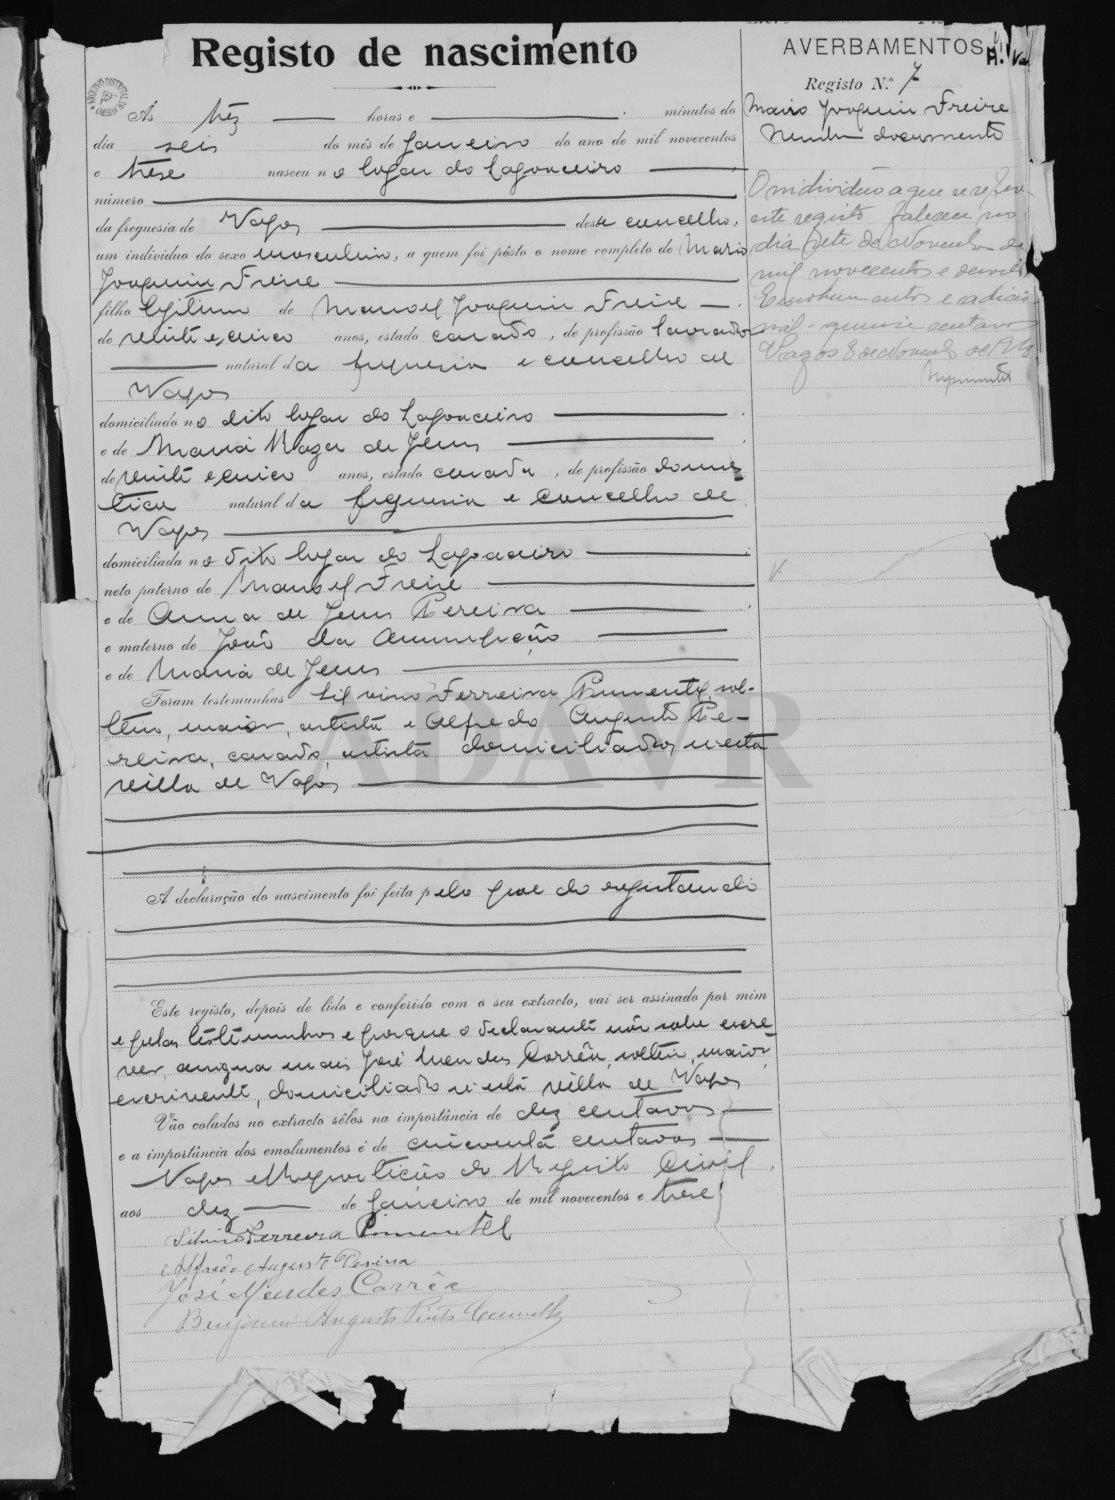 Registo de nascimento
Ás três horas e minutos do
dia seis do mês de Janeiro do ano de mil novecentos
e trese nasceu no logar do Lagonceiro
número
da freguesia de Vagos deste concelho,
um individuo do sexo masculino, a quem foi pôsto o nome completo de Mario
Joaquim Freire
filho legitimo de Manoel Joaquim Freire
de vinte e cinco anos, estado casado, de profissão lavrador
natural da freguesia e concelho de
Vagos
domiciliado no dito logar do Lagonceiro
e de Maria de Jesus
de vinte e cinco anos, estado casada, de profissão domes
tica natural da freguesia e concelho de
Vagos
domiciliada no dito logar do Lagonceiro
neto paterno de Manoel Freire
e de Anna de Jesus Pereira
e materno de João da Annunciação
e de Maria de Jesus
Foram testemunhas Silvino Ferreira Pimentel, sol-
teiro, maior, artista e Alfredo Augusto Pe-
reira, casado, artista, domiciliados nesta
villa de Vagos
A declaração do nascimento foi feita pelo pae do registando
Este registo, depois de lido e conferido com o seu extracto, vai ser assinado por mim
e pelas testemunhas e porque o declarante não sabe escre
ver, assigna mais José Mendes Corrêa, solteiro, maior,
escrevente, domiciliado nesta villa de Vagos
Vão colados no extracto sêlos na importância de dez centavos
e a importância dos emolumentos é de cincoenta centavos
Vagos e Repartição do Registo Civil,
aos dez de Janeiro de mil novecentos e trese
Silvino Ferreira Pimentel
Alfredo Augusto Pereira
José Mendes Corrêa
Benjamin Augusto Pinto
AVERBAMENTOS
Registo N.º 7
Mario Joaquim Freire
Nenhum documento
O individuo a que se refere
este registo faleceu no
dia sete de Novembro de
mil novecentos e dezoito
Emolumentos e adicio
nal - quinse centavos
Vagos 8 de Novembro de 1918
ADAVR